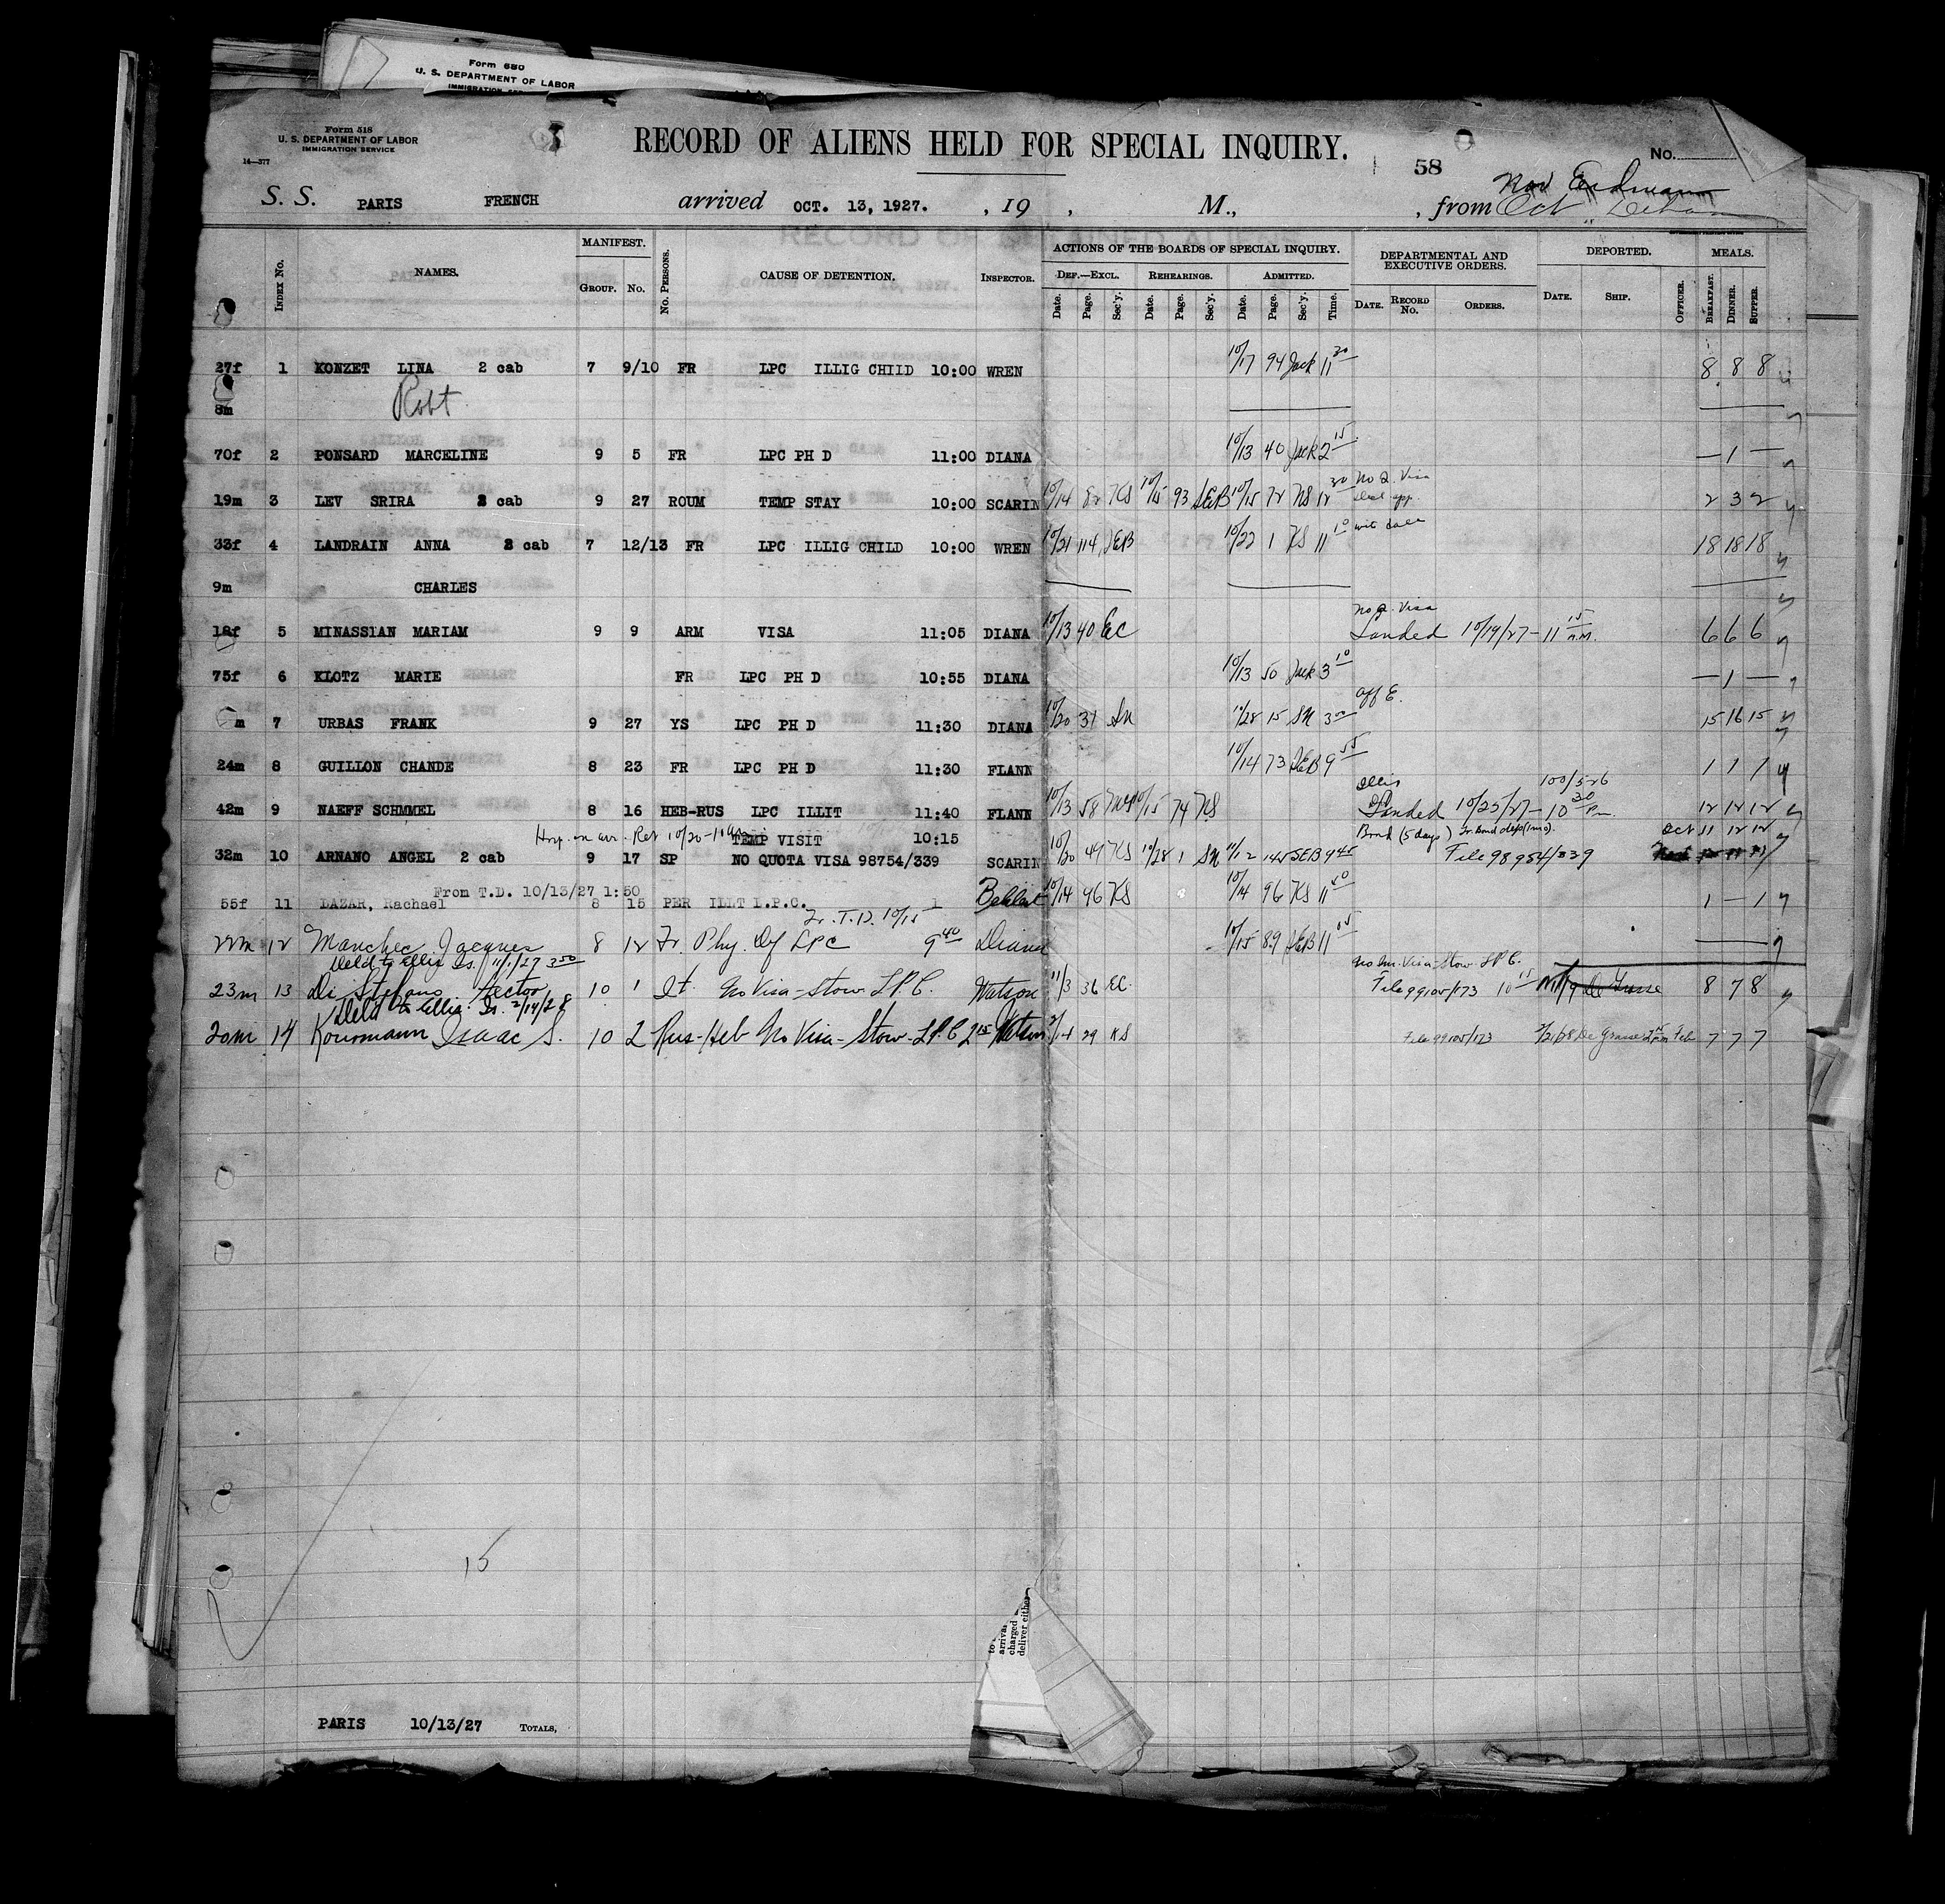 Form 680
U. S. DEPARTMENT OF LABOR
Form 518
U. S. DEPARTMENT OF LABOR
IMMIGRATION SERVICE
14—377
3 RECORD OF ALIENS HELD FOR SPECIAL INQUIRY. 58 No.
Nov Erdmann
S. S. PARIS FRENCH arrived OCT. 13, 1927. , 19 , M., , from Oct
INDEX No. NAMES. MANIFEST. GROUP. No. No. PERSONS. CAUSE OF DETENTION. INSPECTOR. ACTIONS OF THE BOARDS OF SPECIAL INQUIRY. DEPARTMENTAL AND EXECUTIVE ORDERS. DEPORTED. MEALS.
DEF.—EXCL. REHEARINGS. ADMITTED.
Date. Page. Sec'y. Date. Page. Sec'y. Date. Page. Sec'y. Time. DATE. RECORD No. ORDERS. DATE. SHIP. OFFICER. BREAKFAST. DINNER. SUPPER.
27f 1 KONZET LINA 2 cab 7 9/10 FR LPC ILLIG CHIID 10:00 WREN 10/17 94 Jack 11 30 8 8 8
8m Robt
70f 2 PONSARD MARCELINE 9 5 FR LPC PH D 11:00 DIANA 10/13 40 Jack 2 15 — 1 —
19m 3 LEV SRIRA 2 cab 9 27 ROUM TEMP STAY 10:00 SCARIN 10/14 82 KS 10/15 93 SEB 10/15 72 NS 12 30 No Q. Visa 2 3 2
33f 4 LANDRAIN ANNA 2 cab 7 12/13 FR LPC ILLIG CHILD 10:00 WREN 10/21 114 SEB 10/22 1 KS 11 10 18 18 18
9m CHARLES
18f 5 MINASSIAN MARIAM 9 9 ARM VISA 11:05 DIANA 10/13 40 EC No Q. Visa Landed 10/19/27 - 11 15 A.M. 6 6 6
75f 6 KLOTZ MARIE FR LPC PH D 10:55 DIANA 10/13 50 Jack 3 10 — 1 —
m 7 URBAS FRANK 9 27 YS LPC PH D 11:30 DIANA 10/20 31 SN 10/28 15 SN 3 00 15 16 15
24m 8 GUILLON CHANDE 8 23 FR LPC PH D 11:30 FLANN 10/14 73 SEB 9 55 1 1 1
42m 9 NAEFF SCHMMEL 8 16 HEB-RUS LPC ILLIT 11:40 FLANN 10/13 58 10/15 74 NS Landed 10/25/27 - 10 30 12 12 12
Hosp. on arr. Ret 10/20 - TEMP VISIT 10:15 Bond (5 days) Oct 11 12 12
32m 10 ARNANO ANGEL 2 cab 9 17 SP NO QUOTA VISA 98754/339 SCARIN 10/20 47 KS 10/28 1 SN 11/12 145 SEB 9 45 File 98954/339
From T.D. 10/13/27 1:50
55f 11 LAZAR, Rachael 8 15 PER ILLT L.P.C. 10/14 96 KS 10/14 96 KS 11 40 1 — 1
Fr. T.D. 10/15
22m 12 Manchec Jacques 8 12 Fr. Phy. Df LPC 9 40 Diana 10/15 89 SEB 11 05
Deld to Ellis Is. 11/1/27 3 50 No Im. Visa-Stow. L.P.C.
23m 13 Di Stefano Hector 10 1 It. No Visa - Stow. L.P.C. Watson 11/3 36 EC File 99105/173 10 15 De Grasse 8 7 8
Deld to Ellis Is. 2/14/28
20m 14 Kousmann Isaac S. 10 2 Rus-Heb No Visa - Stow - L.P.C 2 15 Watson 2/14 29 KS File 99105/173 2/21/28 De Grasse Feb 7 7 7
15
to
arriva
charged
deliver eithe
PARIS 10/13/27 TOTALS,